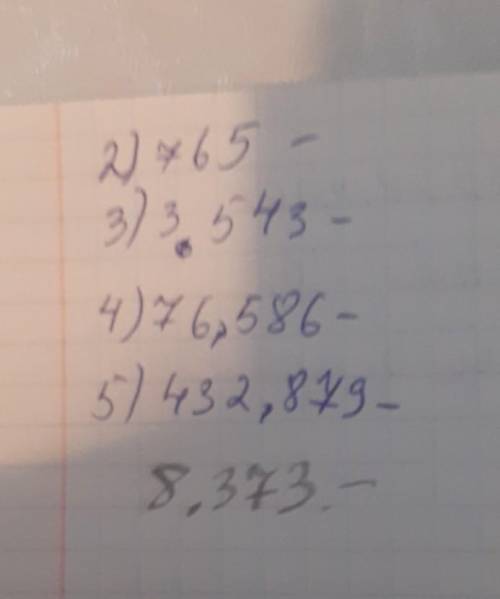 2) 765 -
3) 3.543 -
4) 76,586 -
5) 432,879 -
8.373. -